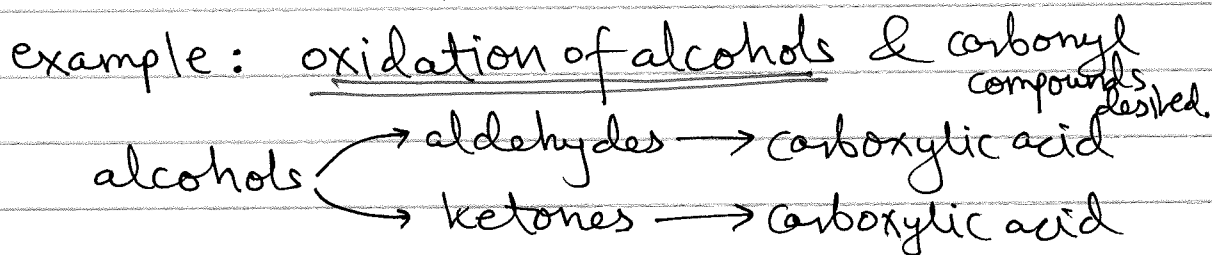 example: oxidation of alcohols & carbonyl
compounds
desired.
aldehydes → carboxylic acid
alcohols
ketones → carboxylic acid